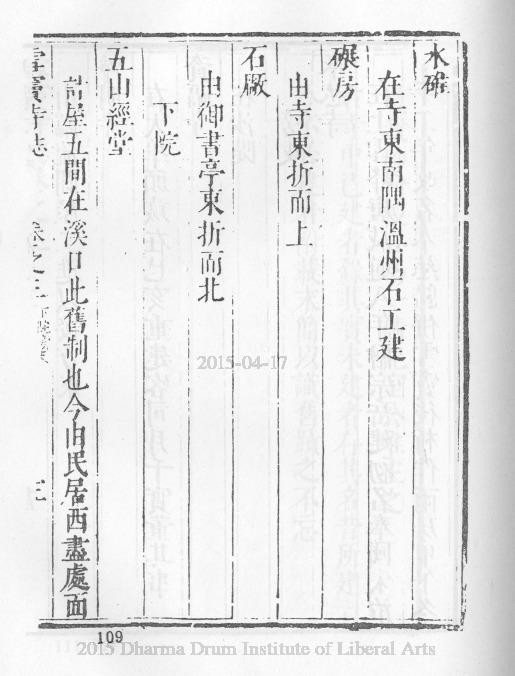 水碓
在寺東南隅溫州石工建
碾房
由寺東折而上
石廠
由御書亭東折而北
下院
五山經堂
計屋五間在溪口此舊制也今由民居西盡處面
雪竇寺志 卷之三 下院
109
2015-04-17
2015 Dharma Drum Institute of Liberal Arts